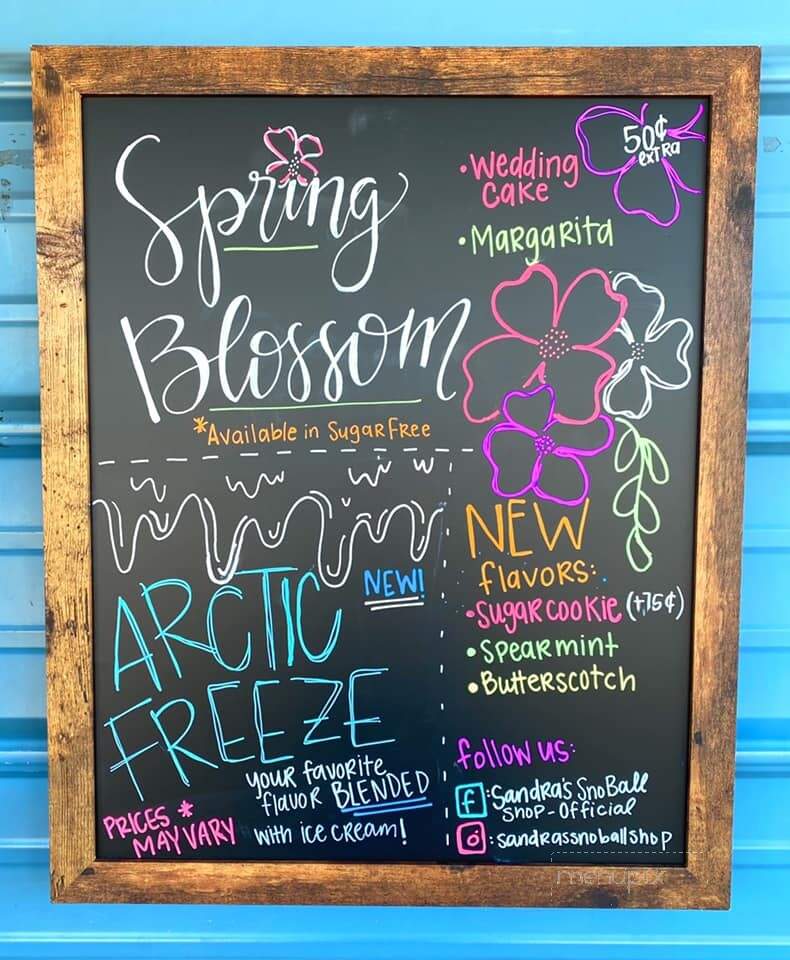 Spring
Blossom
*Available in SugarFree
• Wedding
Cake
• Margarita
50¢
extra
NEW
flavors:
• Sugar cookie (+.75¢)
• Spearmint
• Butterscotch
ARCTIC
FREEZE
NEW!
your favorite
flavor BLENDED
with ice cream!
PRICES *
MAY VARY
follow us:
f : Sandra's SnoBall
Shop-Official
: sandrassnoballshop
menupix